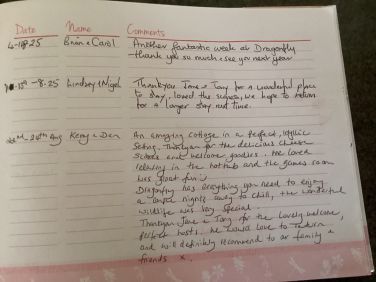 Date Name Comments
4-18-25 Brian & Carol Another fantastic week at Dragonfly
thank you so much & see you next year
-8.25 Lindsey & Nigel Thankyou Jane & Tony for a wonderful place
to stay, loved the we hope to return
for a longer stay next time.
24th Aug Kerry & Dan An amazing cottage in a perfect, idyllic
setting. Thankyou for the delicious cheese
scones and welcome goodies. We loved
relaxing in the hottub and the games room
was great fun :)
Dragonfly has everything you need to enjoy
a couple nights away to chill, the wonderful
wildlife was very special.
Thankyou Jane & Tony for the lovely welcome,
perfect hosts. We would love to return
and will definitely recommend to our family &
friends x.